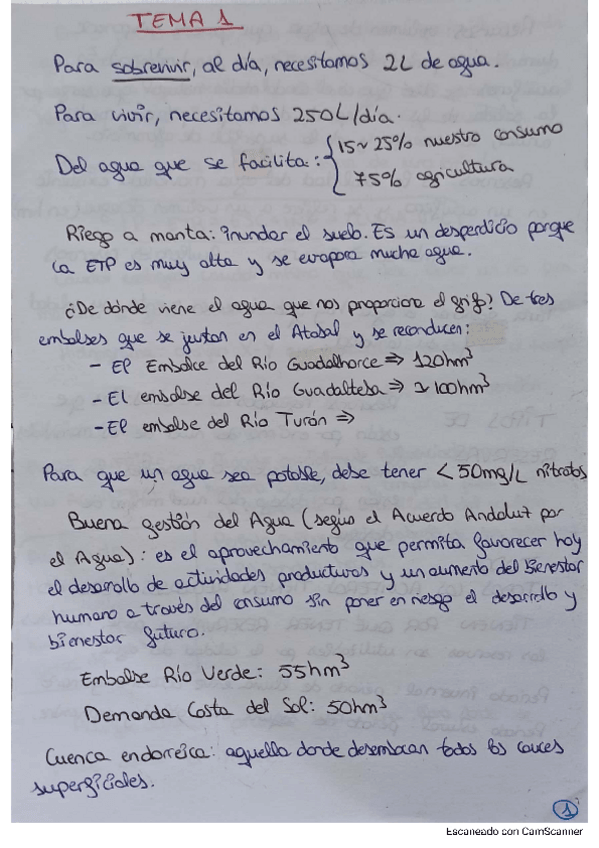 TEMA 1
Para sobrevivir, al día, necesitamos 2L de agua.
Para vivir, necesitamos 250L/día.
Del agua que se facilita: { 15~25% nuestro consumo
75% agricultura
Riego a manta: inundar el suelo. Es un desperdicio porque
la ETP es muy alta y se evapora mucha agua.
¿De dónde viene el agua que nos proporciona el grifo? De tres
embalses que se juntan en el Atabal y se reconducen:
- El Embalce del Río Guadalhorce => 120hm³
- El embalse del Río Guadalteba => ~100hm³
- El embalse del Río Turón =>
Para que un agua sea potable, debe tener < 50mg/L nitratos
Buena gestión del Agua (según el Acuerdo Andaluz por
el Agua): es el aprovechamiento que permita favorecer hoy
el desarollo de actividades productivas y un aumento del Bienestar
humano a través del consumo sin poner en riesgo el desarrollo y
bienestar futuro.
Embalse Río Verde: 55hm³
Demanda Costa del Sol: 50hm³
Cuenca endorreica: aquella donde desembocan todos los cauces
superficiales.
1
Escaneado con CamScanner